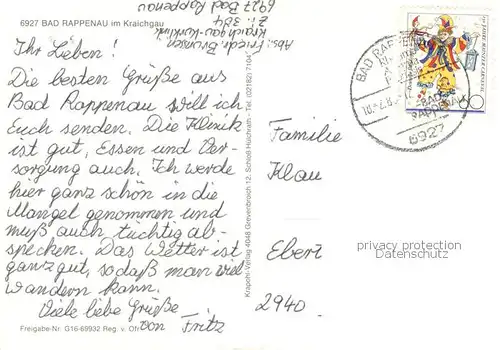 6927 BAD RAPPENAU im Kraichgau
Abs: Friedr.
Kraichgau-Kurklinik
Zi: 314
6927 Bad Rappenau
Ihr Lieben!
Die besten Grüße aus
Bad Rappenau will ich
Euch senden. Die Klinik
ist gut, Essen und Ver-
sorgung auch. Ich werde
hier ganz schön in die
Mangel genommen und
muß auch tüchtig ab-
specken. Das Wetter ist
ganz gut, so daß man viel
wandern kann.
Viele liebe Grüße
von Fritz
Freigabe-Nr. G16-69932 Reg. v. Ofr
Krapohl-Verlag 4048 Grevenbroich 12, Schloß Hülchrath - Tel. (02182) 7104
BAD RAPPENAU
6927
60
Familie
Klau
Ebert
2940
privacy protection
Datenschutz